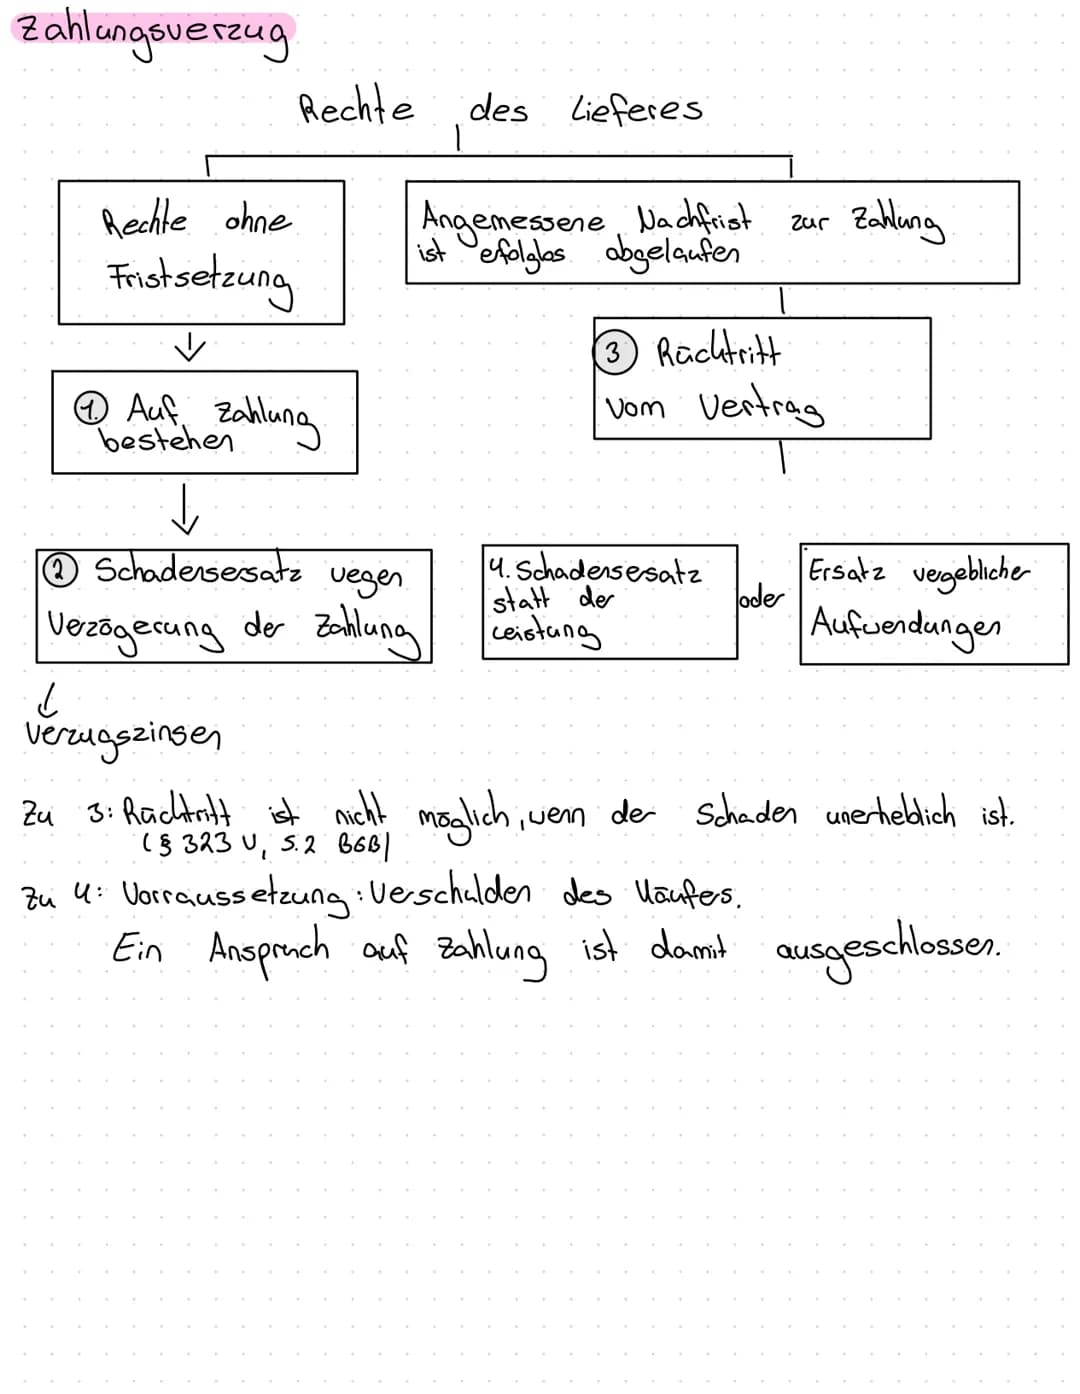 Zahlungsverzug
Rechte des Lieferes
Rechte ohne
Fristsetzung
Angemessene Nachfrist zur Zahlung
ist efolglos abgelaufen
1. Auf Zahlung
bestehen
3 Rücktritt
vom Vertrag
2 Schadensersatz wegen
Verzögerung der Zahlung
4. Schadensersatz
statt der
Leistung
oder
Ersatz vergeblicher
Aufwendungen
Verzugszinsen
Zu 3: Rücktritt ist nicht möglich, wenn der Schaden unerheblich ist.
(§ 323 V, S. 2 BGB)
Zu 4: Vorraussetzung: Verschulden des Käufers.
Ein Anspruch auf Zahlung ist damit ausgeschlossen.